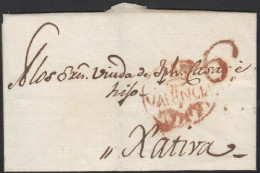 A los Sres. Viuda de Jph. Casa è
hijo
VALENCIA
6
Xativa